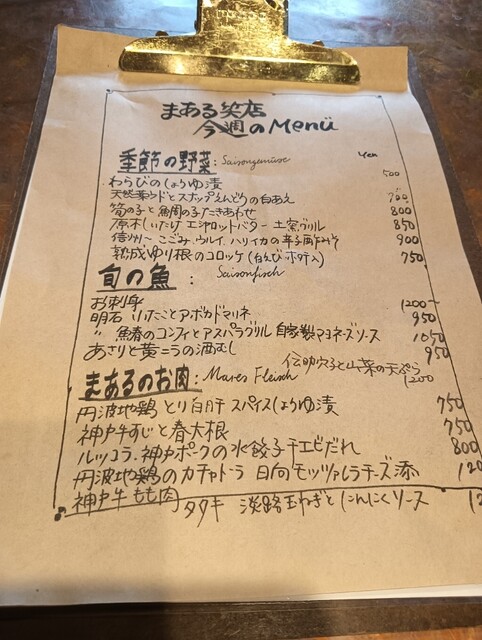 まある笑店
今週のMenü
季節の野菜: Saisongemüse Yen
わらびのしょうゆ漬 500
天然葉ウドとスナップえんどうの白あえ 700
筍の子と鯛の子たきあわせ 800
原木しいたけ エシャロットバター 土窯グリル 850
信州〜こごみ、ウルイ、ハリイカの辛子酢みそ 900
熟成ゆり根のコロッケ (白えび、ホタテ入) 750
旬の魚: Saisonfisch
お刺身 1200〜
明石 いたことアボカドマリネ 950
〃 魚春のコンフィとアスパラグリル 自家製マヨネーズソース 1050
あさりと黄ニラの酒むし 950
伝助穴子と山菜の天ぷら 1200
まあるのお肉: Mares Fleisch
丹波地鶏 とり白肝 スパイスしょうゆ漬 750
神戸牛すじと春大根 750
ルッコラ・神戸ポークの水餃子 干エビだれ 800
丹波地鶏のカチャトーラ 日向モッツァレラチーズ添
神戸牛もも肉 タタキ 淡路玉ねぎとにんにくソース